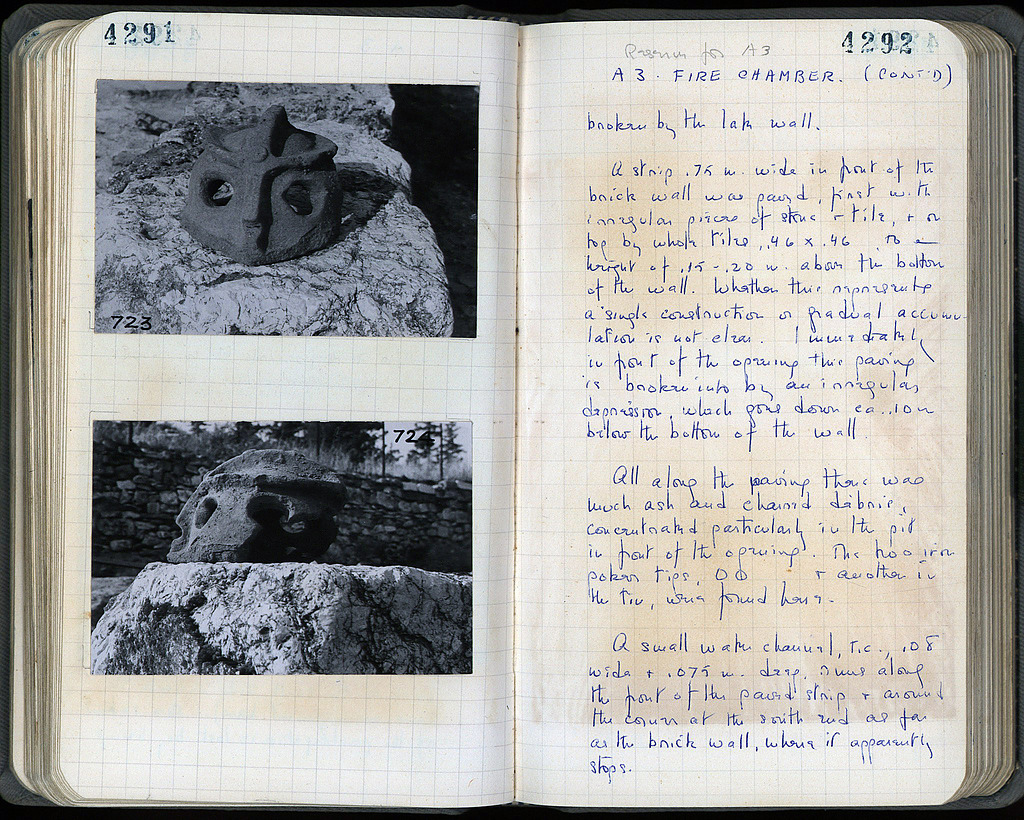 4291
723
724
4292
Reserve for A3
A3. FIRE CHAMBER. (CONT'D)
broken by the late wall.
A strip .75 m. wide in front of the
brick wall was paved, first with
irregular pieces of stone + tile, + on
top by whole tiles, .46 x .46, to a
height of .15-.20 m. above the bottom
of the wall. Whether this represents
a single construction or gradual accumu-
lation is not clear. Immediately
in front of the opening this paving
is broken into by an irregular
depression, which goes down ca. .10 m
below the bottom of the wall.
All along the paving there was
much ash and charred debris,
concentrated particularly in the pit
in front of the opening. The two iron
poker tips, + another in
the tin, were found here.
A small water channel, T.C., .08
wide + .075 m. deep, runs along
the front of the paved strip + around
the corner at the south end as far
as the brick wall, where it apparently
stops.